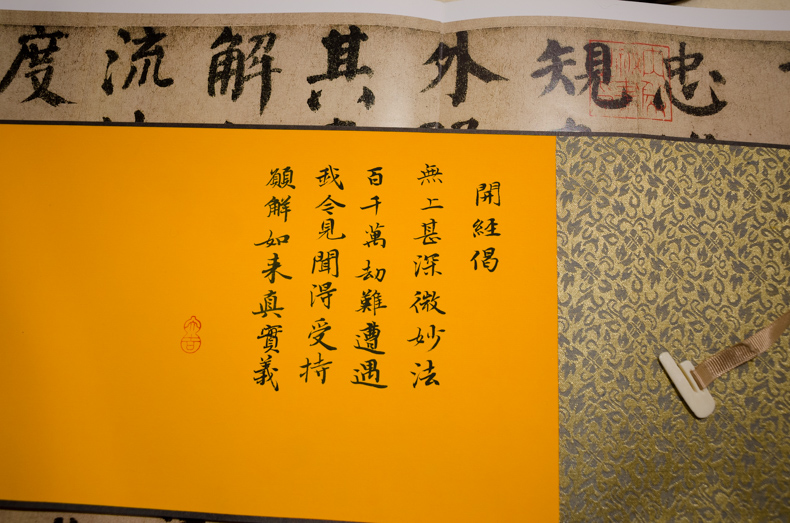 忠規外其解流度
開經偈
無上甚深微妙法
百千萬劫難遭遇
我今見聞得受持
願解如来真實義